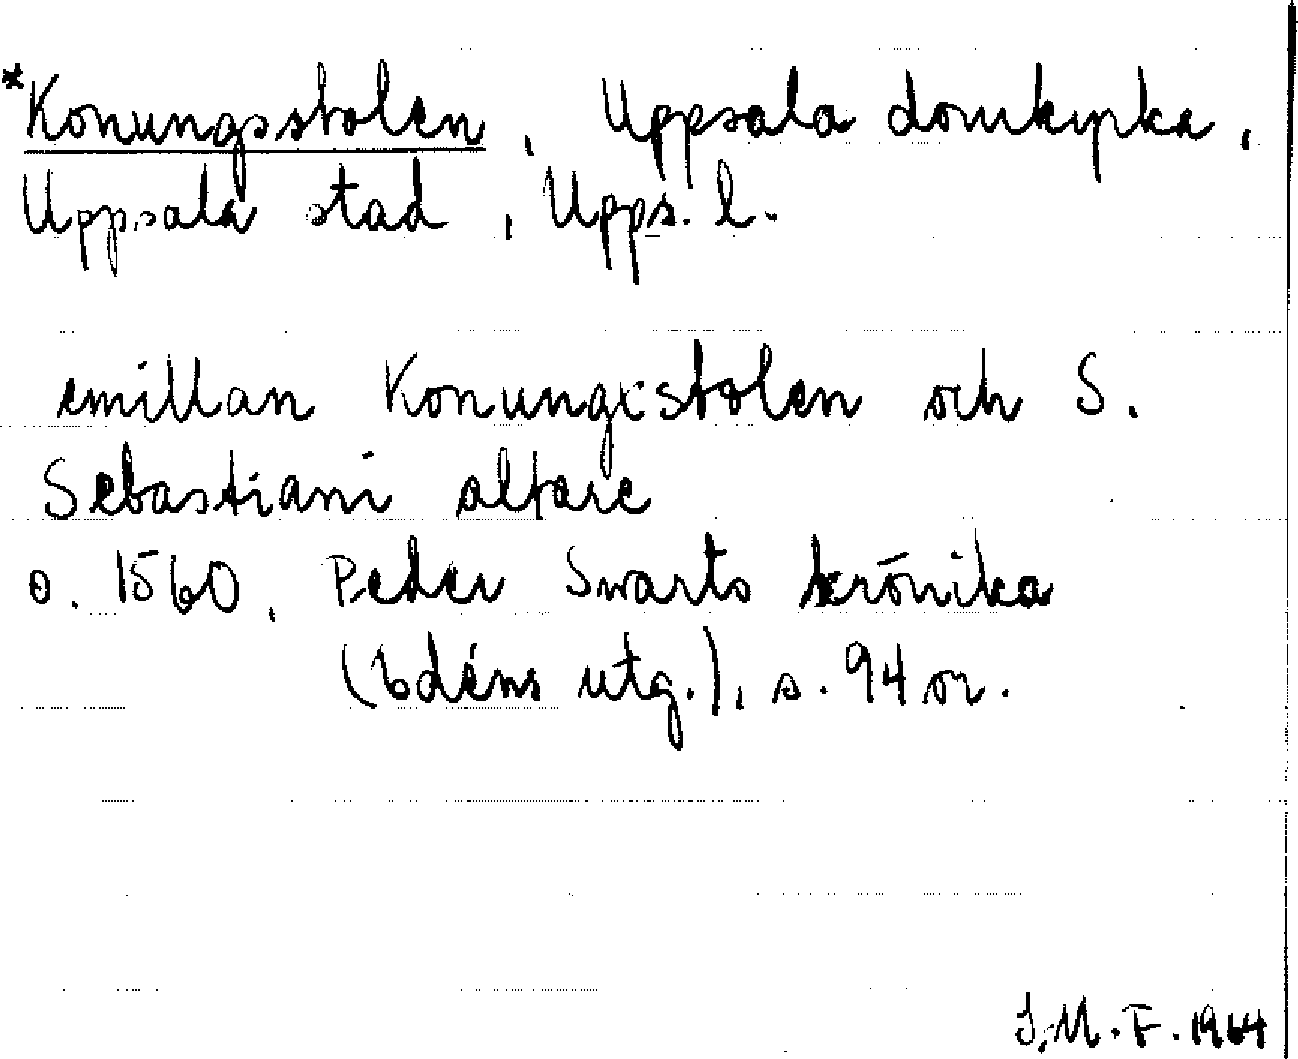 *Konungsstolen, Uppsala domkyrka,
Uppsala stad, Upps. l.
emillan Konungxstolen och S.
Sebastiani altare
o. 1560, Peder Swarts krönika
(Edéns utg.), s. 94 or.
I.M.F. 1964